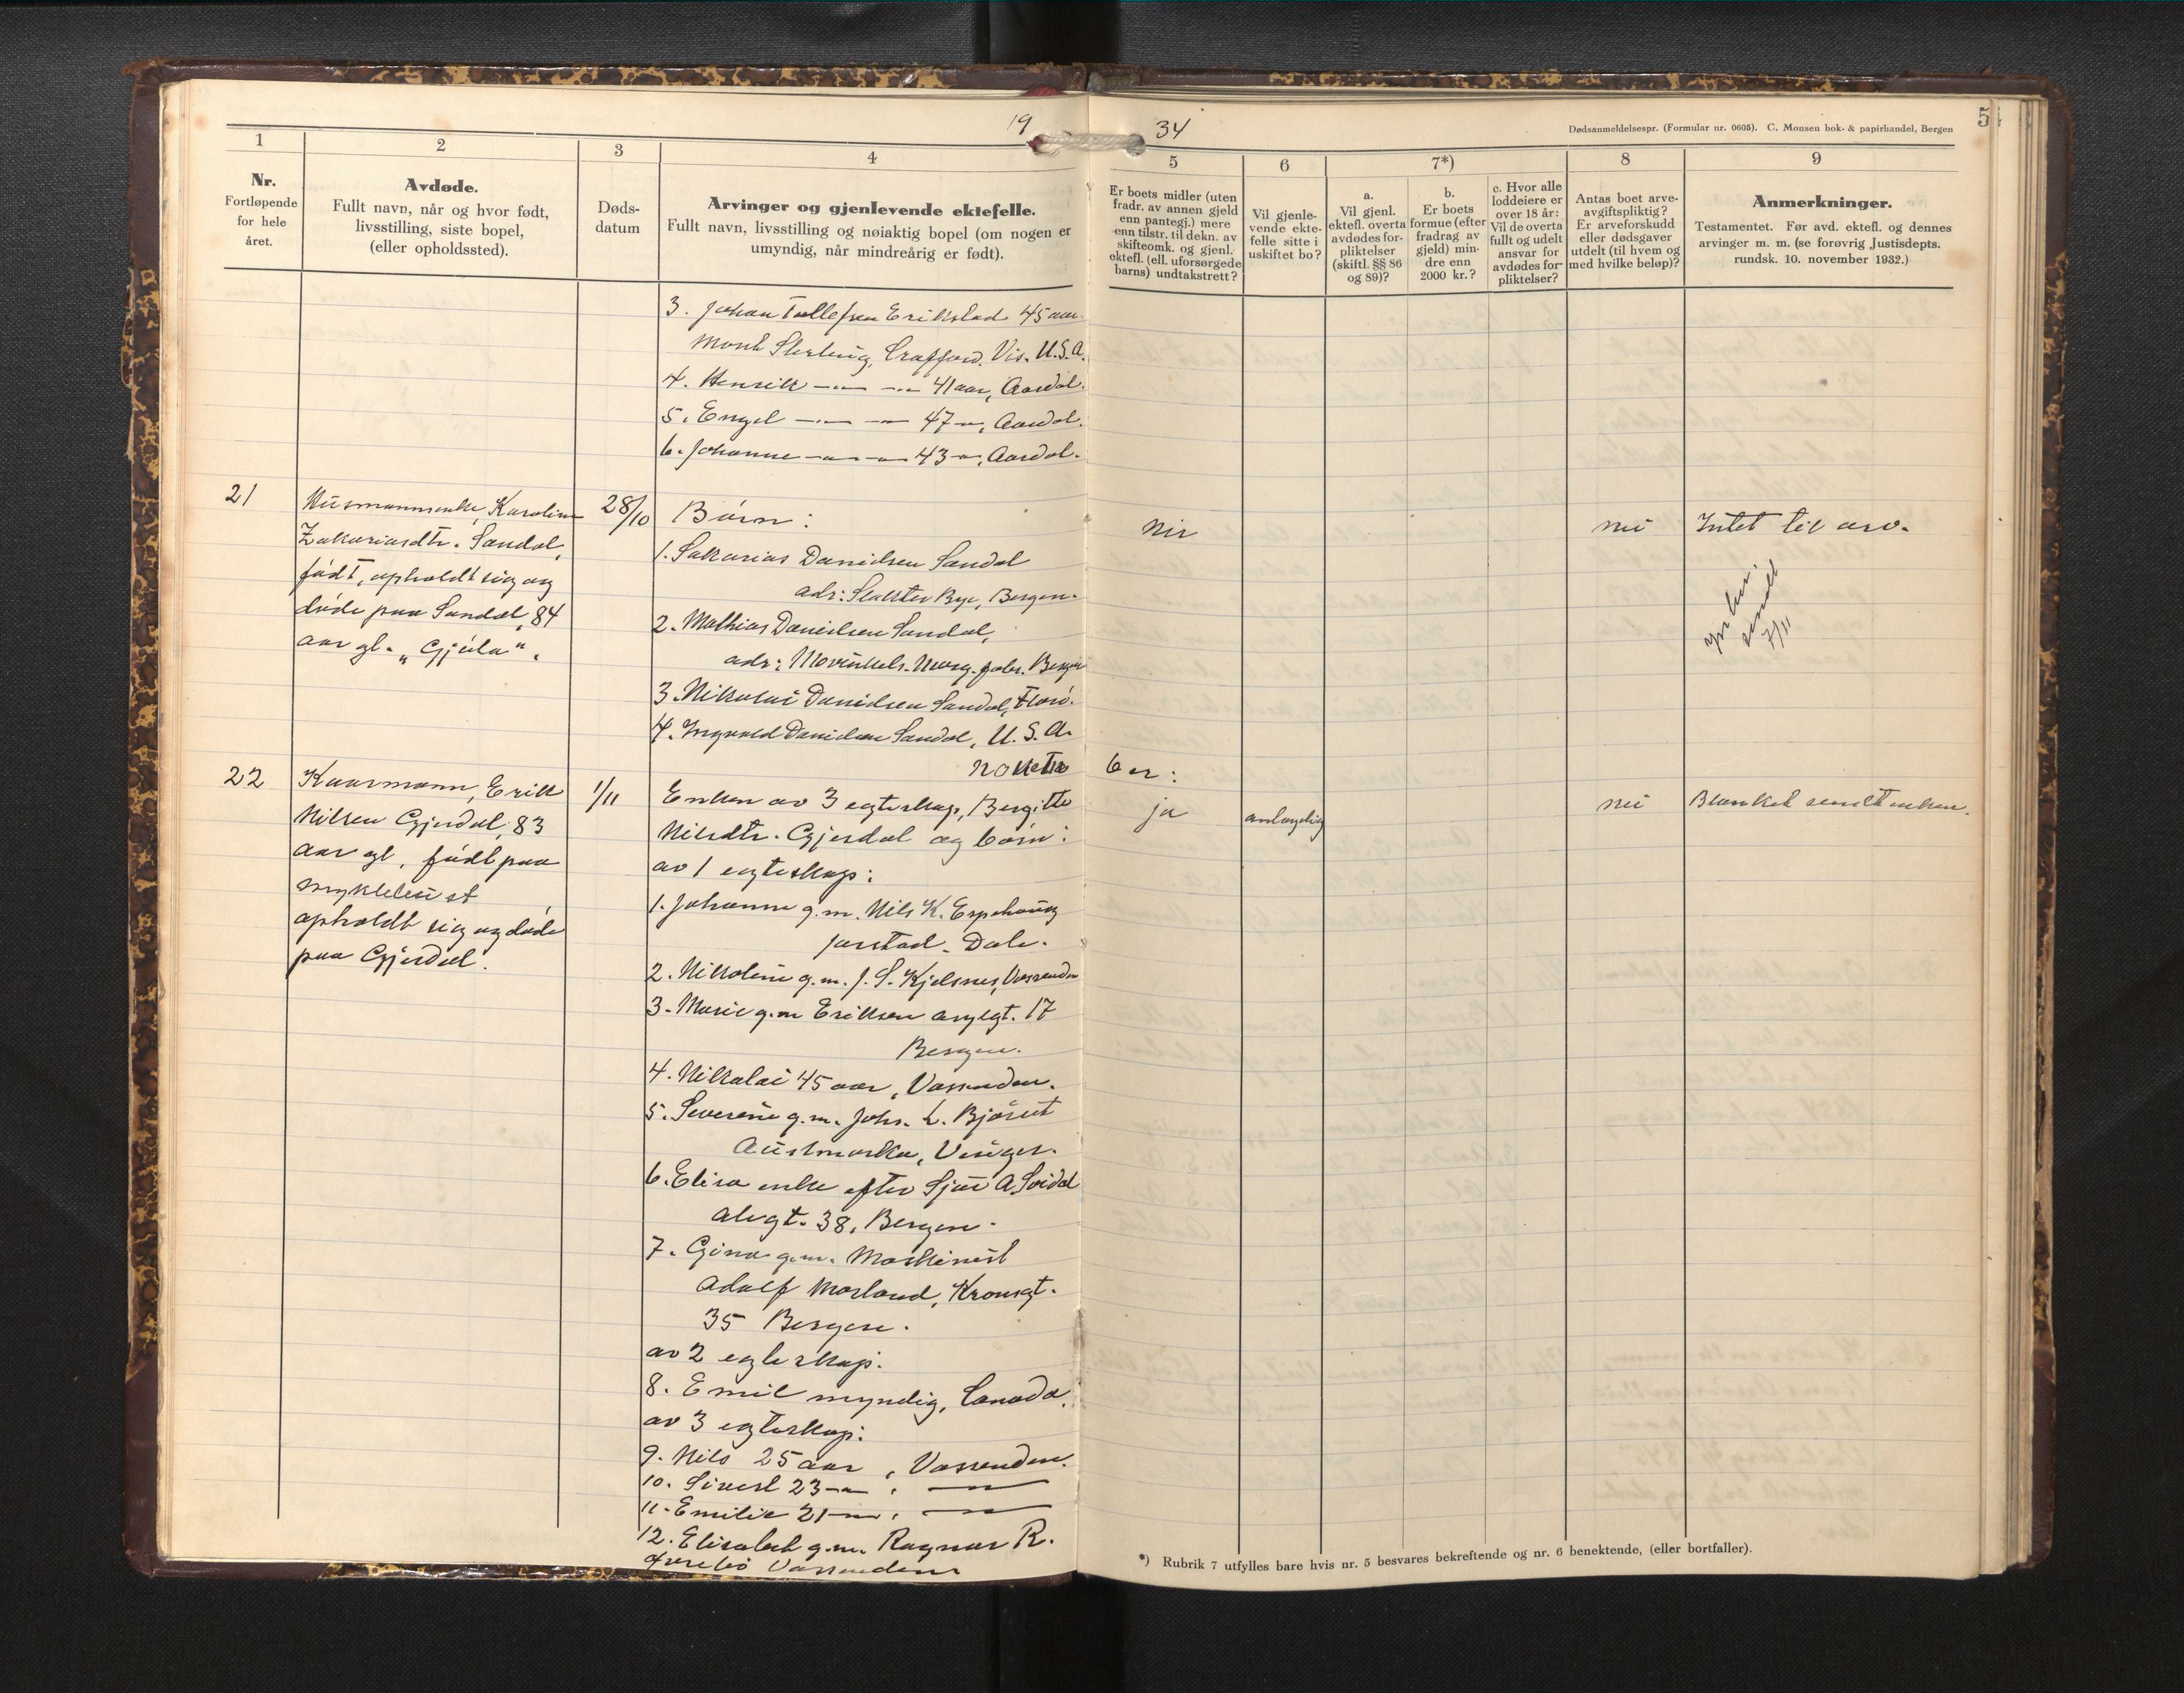 19 34
Dødsanmeldelsespr. (Formular nr. 0605). C. Monsen bok- & papirhandel, Bergen
5
1
2
3
4
5
6
7*)
8
9
Nr.
Fortløpende
for hele
året.
Avdøde.
Fullt navn, når og hvor født,
livsstilling, siste bopel,
(eller opholdssted).
Døds-
datum
Arvinger og gjenlevende ektefelle.
Fullt navn, livsstilling og nøiaktig bopel (om nogen er
umyndig, når mindreårig er født).
Er boets midler (uten
fradr. av annen gjeld
enn pantegj.) mere
enn tilstr. til dekn. av
skifteomk. og gjenl.
ektefl. (ell. uforsørgede
barns) undtakstrett?
Vil gjenle-
vende ekte-
felle sitte i
uskiftet bo?
a.
Vil gjenl.
ektefl. overta
avdødes for-
pliktelser
(skiftl. §§ 86
og 89)?
b.
Er boets
formue (efter
fradrag av
gjeld) min-
dre enn
2000 kr.?
c. Hvor alle
loddeiere er
over 18 år:
Vil de overta
fullt og udelt
ansvar for
avdødes for-
pliktelser?
Antas boet arve-
avgiftspliktig?
Er arveforskudd
eller dødsgaver
utdelt (til hvem og
med hvilke beløp)?
Anmerkninger.
Testamentet. Før avd. ektefl. og dennes
arvinger m. m. (se forøvrig Justisdepts.
rundsk. 10. november 1932.)
3. Johan Tollefsen Erikstad 45 aar.
U.S.A.
4. Henrik —"— —"— 41 aar, Aardal.
5. Engel —"— —"— 47 —"—, Aardal.
6. Johanne —"—"— 43 —"—, Aardal.
21
Husmannsenke, Karoline
Zakariasdtr. Sandal,
født, opholdt sig og
døde paa Sandal, 84
aar gl. "Gjula".
28/10
Børn:
1. Sakarias Danielsen Sandal
adr: Bergen.
2. Mathias Danielsen Sandal,
adr: Bergen
3. Nikolai Danielsen Sandal, Florø.
4. Ingvald Danielsen Sandal, U. S. A.
Nei
nei
Intet til arv.
sendt
7/11
22
Kaarmann, Erik
Nilsen Gjesdal, 83
aar gl, født paa
Myklebust
opholdt sig og døde
paa Gjesdal.
1/11
November:
Enken av 3 egteskap, Bergitte
Nilsdtr. Gjesdal og børn:
av 1 egteskap:
1. Johanne g.m. Nils K. Espehaug
Dale.
2. Nikoline g.m. J. S. Kjelsnes, Vassenden
3. Marie g.m Eriksen asylgt. 17
Bergen.
4. Nikolai 45 aar, Vassenden.
5. Severine g.m. Johs. L. Bjørset
Austmarka, Vinger.
6. Elisa enke efter Sjur A. Svidal
Alvgt. 38, Bergen.
7. Gina g.m. Maskinist
Adolf Morland, Krousgt.
35 Bergen.
av 2 egteskap.
8. Emil myndig, Canada.
av 3 egteskap:
9. Nils 25 aar, Vassenden.
10. Sivert 23 —"—, —"—
11. Emilie 21 —"—, —"—
12. Elisabet g.m. Ragnar R.
Øvrebø Vassenden
ja
antagelig
nei
Blanket sendt enken.
*) Rubrik 7 utfylles bare hvis nr. 5 besvares bekreftende og nr. 6 benektende, (eller bortfaller).